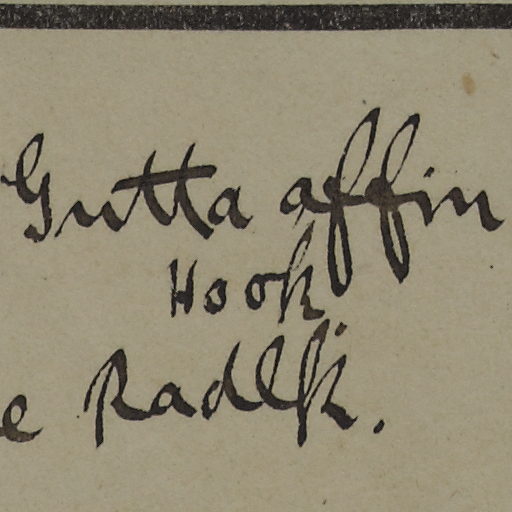 Gutta affin
Hook
e Radlk.